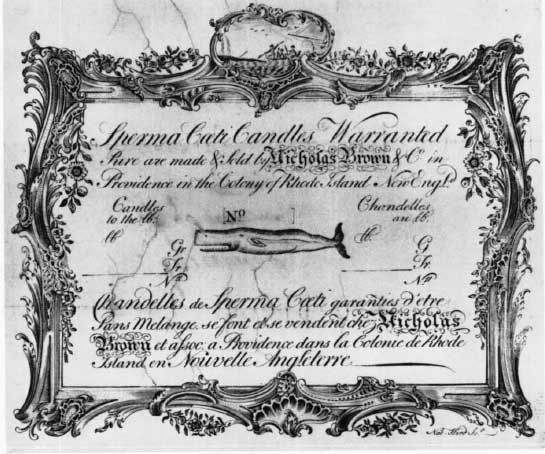 Sperma Cœti Candles Warranted
Pure are made & Sold by Nicholas Brown & Co. in
Providence in the Colony of Rhode Island New Engld.
Candles to the lb.
No
Chandelles au lb.
lb.
lb.
Gr.
G
Tr.
Tr.
Nt
Nt
Chandelles de Sperma Cœti garanties d'etre
Sans Melange, se font et se vendent chez Nicholas
Brown et assoc: a Providence dans la Colonie de Rhode
Island en Nouvelle Angleterre